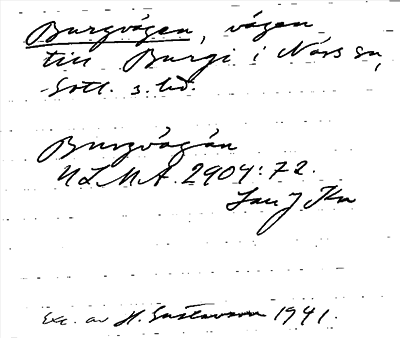 Burgvägen, vägen
till Burgi i Närs sn,
Gotl. s. hd.
Burgvägän
ULMA 2904:72.
Exc. av H. Gustavson 1941.